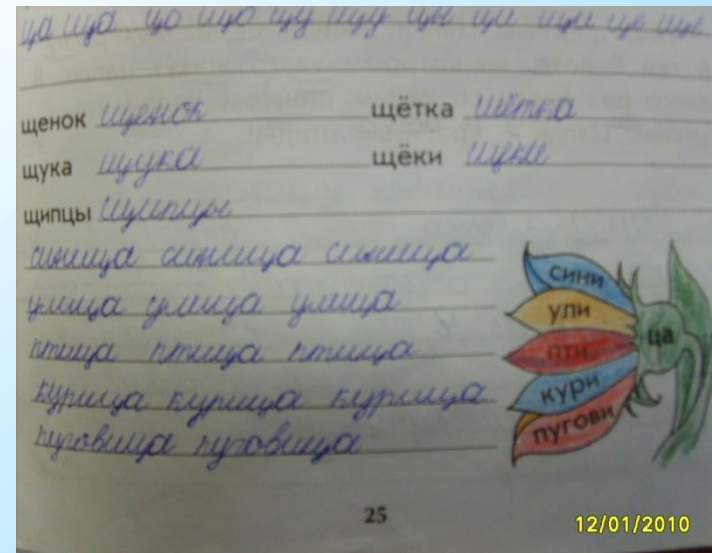 ца ща цо що цу щу цы ци щи це ще
щенок щенок щётка щётка
щука щука щёки щёки
щипцы щипцы
синица синица синица
улица улица улица
птица птица птица
курица курица курица
пуговица пуговица
сини
ули
пти
ца
кури
пугови
25
12/01/2010